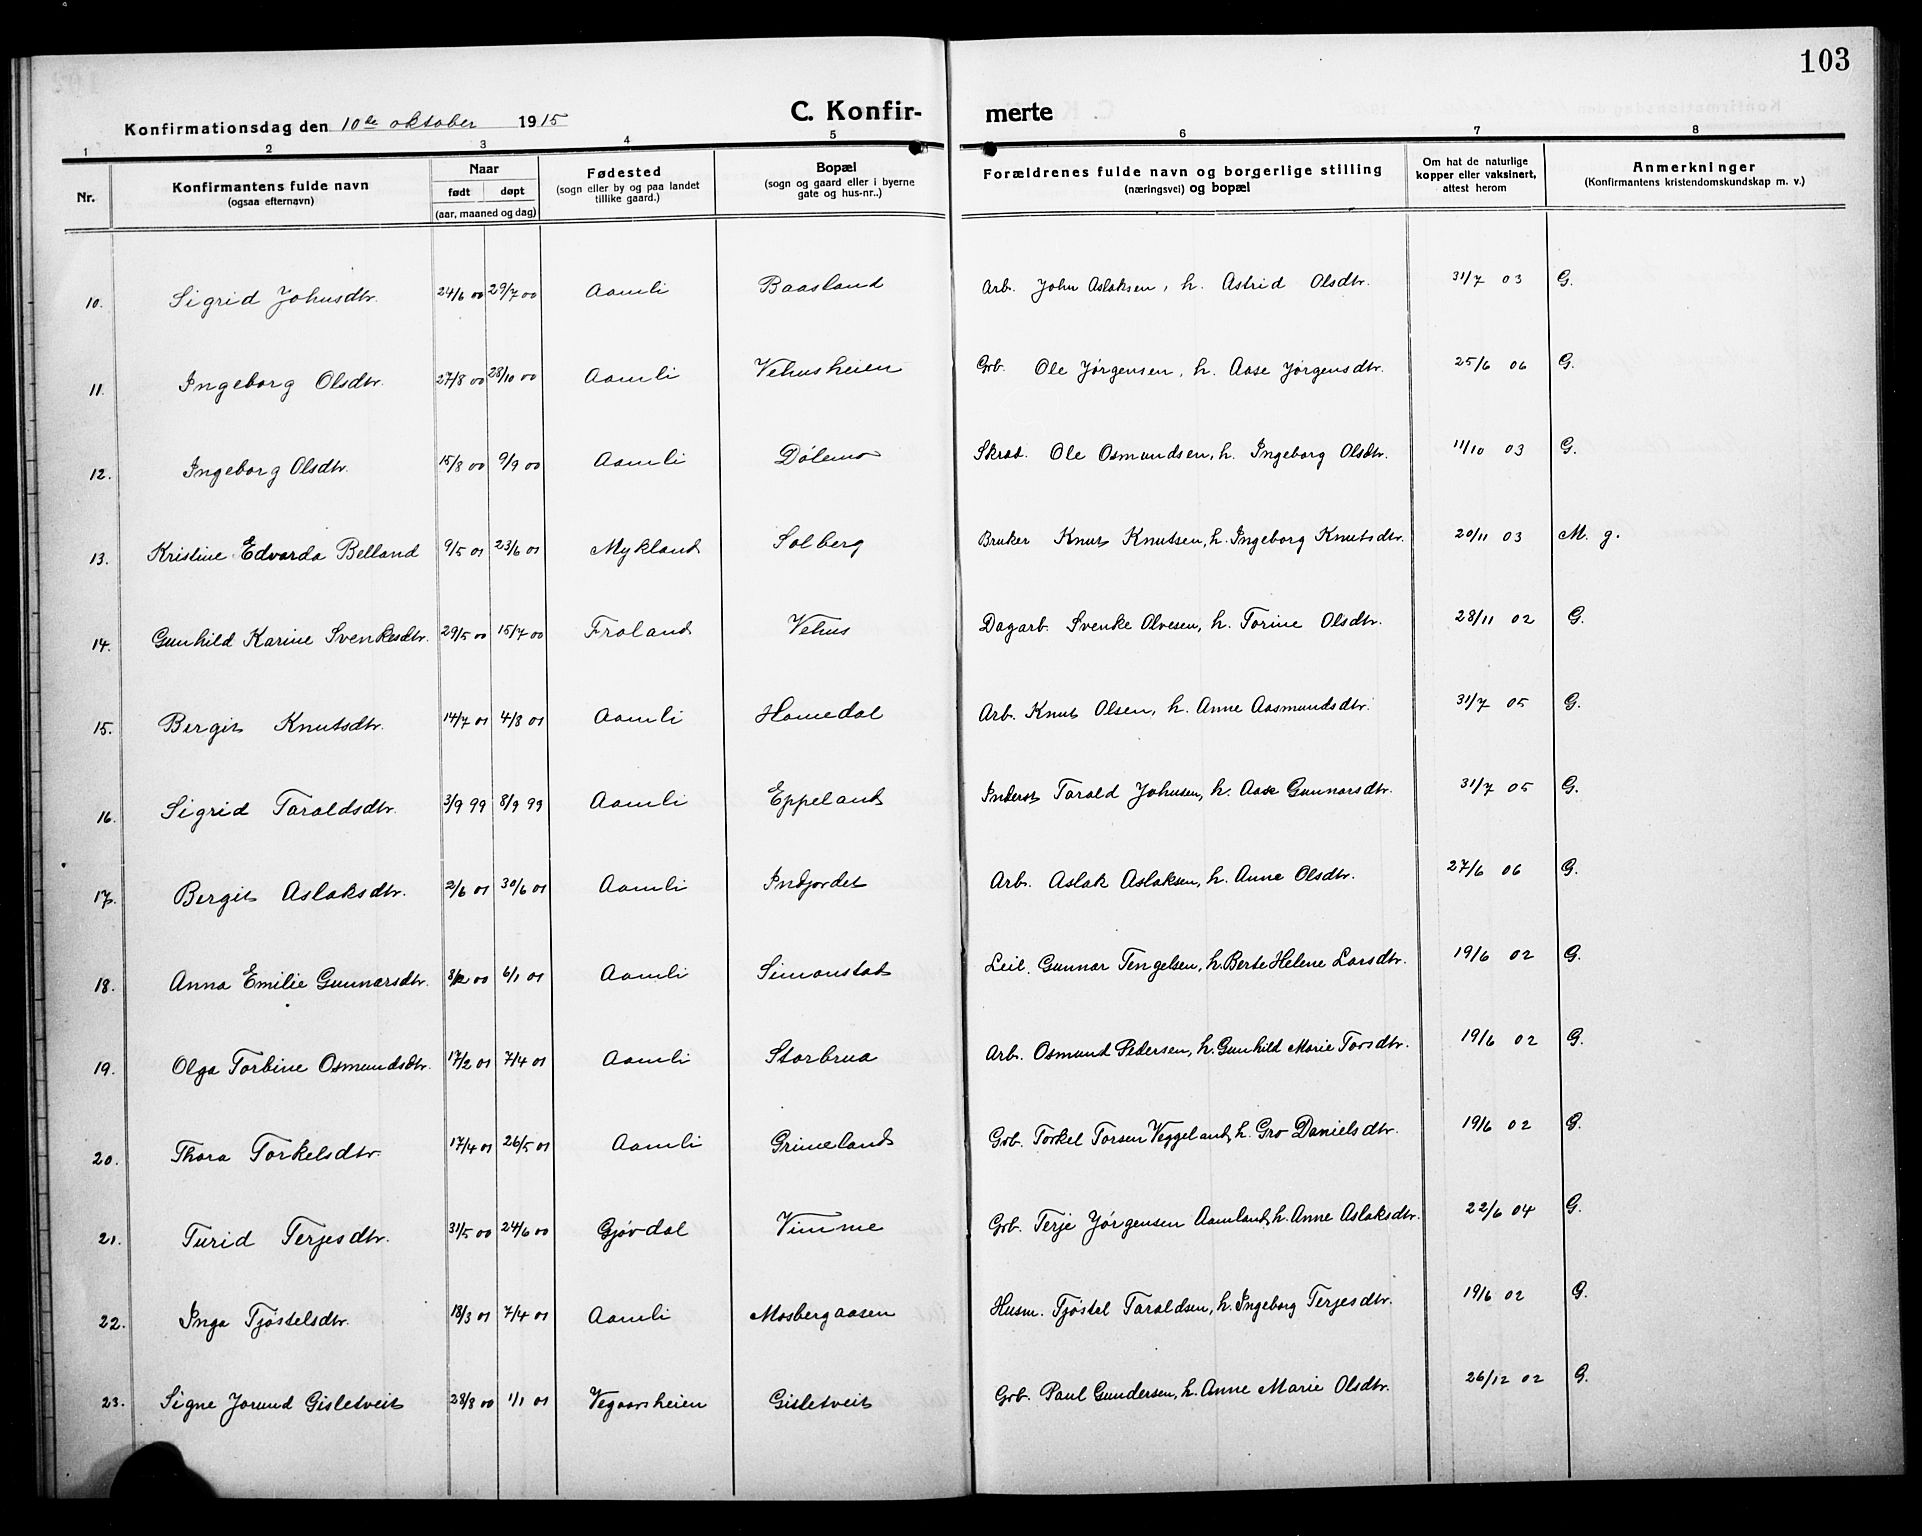 103
Konfirmationsdag den 10de oktober 1915 C. Konfir- merte
1 2 3 4 5 6 7 8
Nr. Konfirmantens fulde navn (ogsaa efternavn) Naar født døpt (aar, maaned og dag) Fødested (sogn eller by og paa landet tillike gaard.) Bopæl (sogn og gaard eller i byerne gate og hus-nr..) Forældrenes fulde navn og borgerlige stilling (næringsvei) og bopæl Om hat de naturlige kopper eller vaksinert, attest herom Anmerkninger (Konfirmantens kristendomskundskap m. v.)
10. Sigrid Johnsdtr. 24/6 00 29/7 00 Aamli Baasland Arb. John Aslaksen, h. Astrid Olsdtr. 31/7 03 G.
11. Ingeborg Olsdtr. 27/8 00 28/10 00 Aamli Vehusheien Grb. Ole Jørgensen, h. Aase Jørgensdtr. 25/6 06 G.
12. Ingeborg Olsdtr. 15/8 00 9/9 00 Aamli Dølemo Skræd. Ole Osmundsen, h. Ingeborg Olsdtr. 11/10 03 G.
13. Kristine Edvarda Belland 9/5 01 23/6 01 Mykland Solberg Bruker Knut Knutsen, h. Ingeborg Knutsdtr. 20/11 03 M. g.
14. Gunhild Karine Svenkesdtr. 29/5 00 15/7 00 Froland Vehus Dagarb. Svenke Olvesen, h. Torine Olsdtr. 28/11 02 G.
15. Bergit Knutsdtr. 14/7 01 4/8 01 Aamli Hamedal Arb. Knut Olsen, h. Anne Aasmundsdtr. 31/7 05 G.
16. Sigrid Taraldsdtr. 3/9 99 8/9 99 Aamli Eppeland Inderst Tarald Johnsen, h. Aase Gunnarsdtr. 31/7 05 G.
17. Bergit Aslaksdtr. 2/6 01 30/6 01 Aamli Indjordet Arb. Aslak Aslaksen, h. Anne Olsdtr. 27/6 06 G.
18. Anna Emilie Gunnarsdtr. 8/12 00 6/1 01 Aamli Simonstad Leil. Gunnar Tengelsen, h. Berte Helene Larsdtr. 19/6 02 G.
19. Olga Torbine Osmundsdtr. 17/2 01 7/4 01 Aamli Storbrua Arb. Osmund Pedersen, h. Gunhild Marie Torsdtr. 19/6 02 G.
20. Thora Torkelsdtr. 17/4 01 26/5 01 Aamli Grimeland Grb. Torkel Torsen Veggeland, h. Gro Danielsdtr. 19/6 02 G.
21. Turid Terjesdtr. 31/5 00 24/6 00 Gjøvdal Vimme Grb. Terje Jørgensen Aamland, h. Anne Aslaksdtr. 22/6 04 G.
22. Inga Tjøstelsdtr. 18/3 01 7/4 01 Aamli Mosbergaasen Husm. Tjøstel Taraldsen, h. Ingeborg Terjesdtr. 19/6 02 G.
23. Signe Jorund Gisletveit 28/8 00 1/1 01 Vegaarsheien Gisletveit Grb. Paul Gundersen, h. Anne Marie Olsdtr. 26/12 02 G.